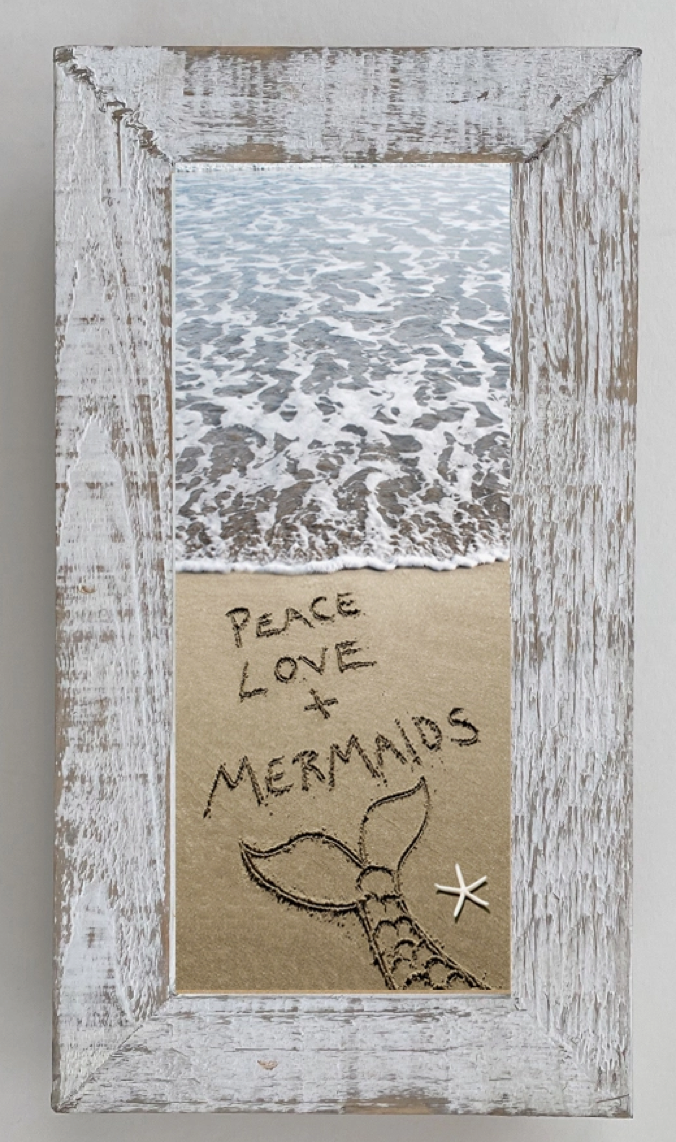 PEACE
LOVE
+
MERMAIDS